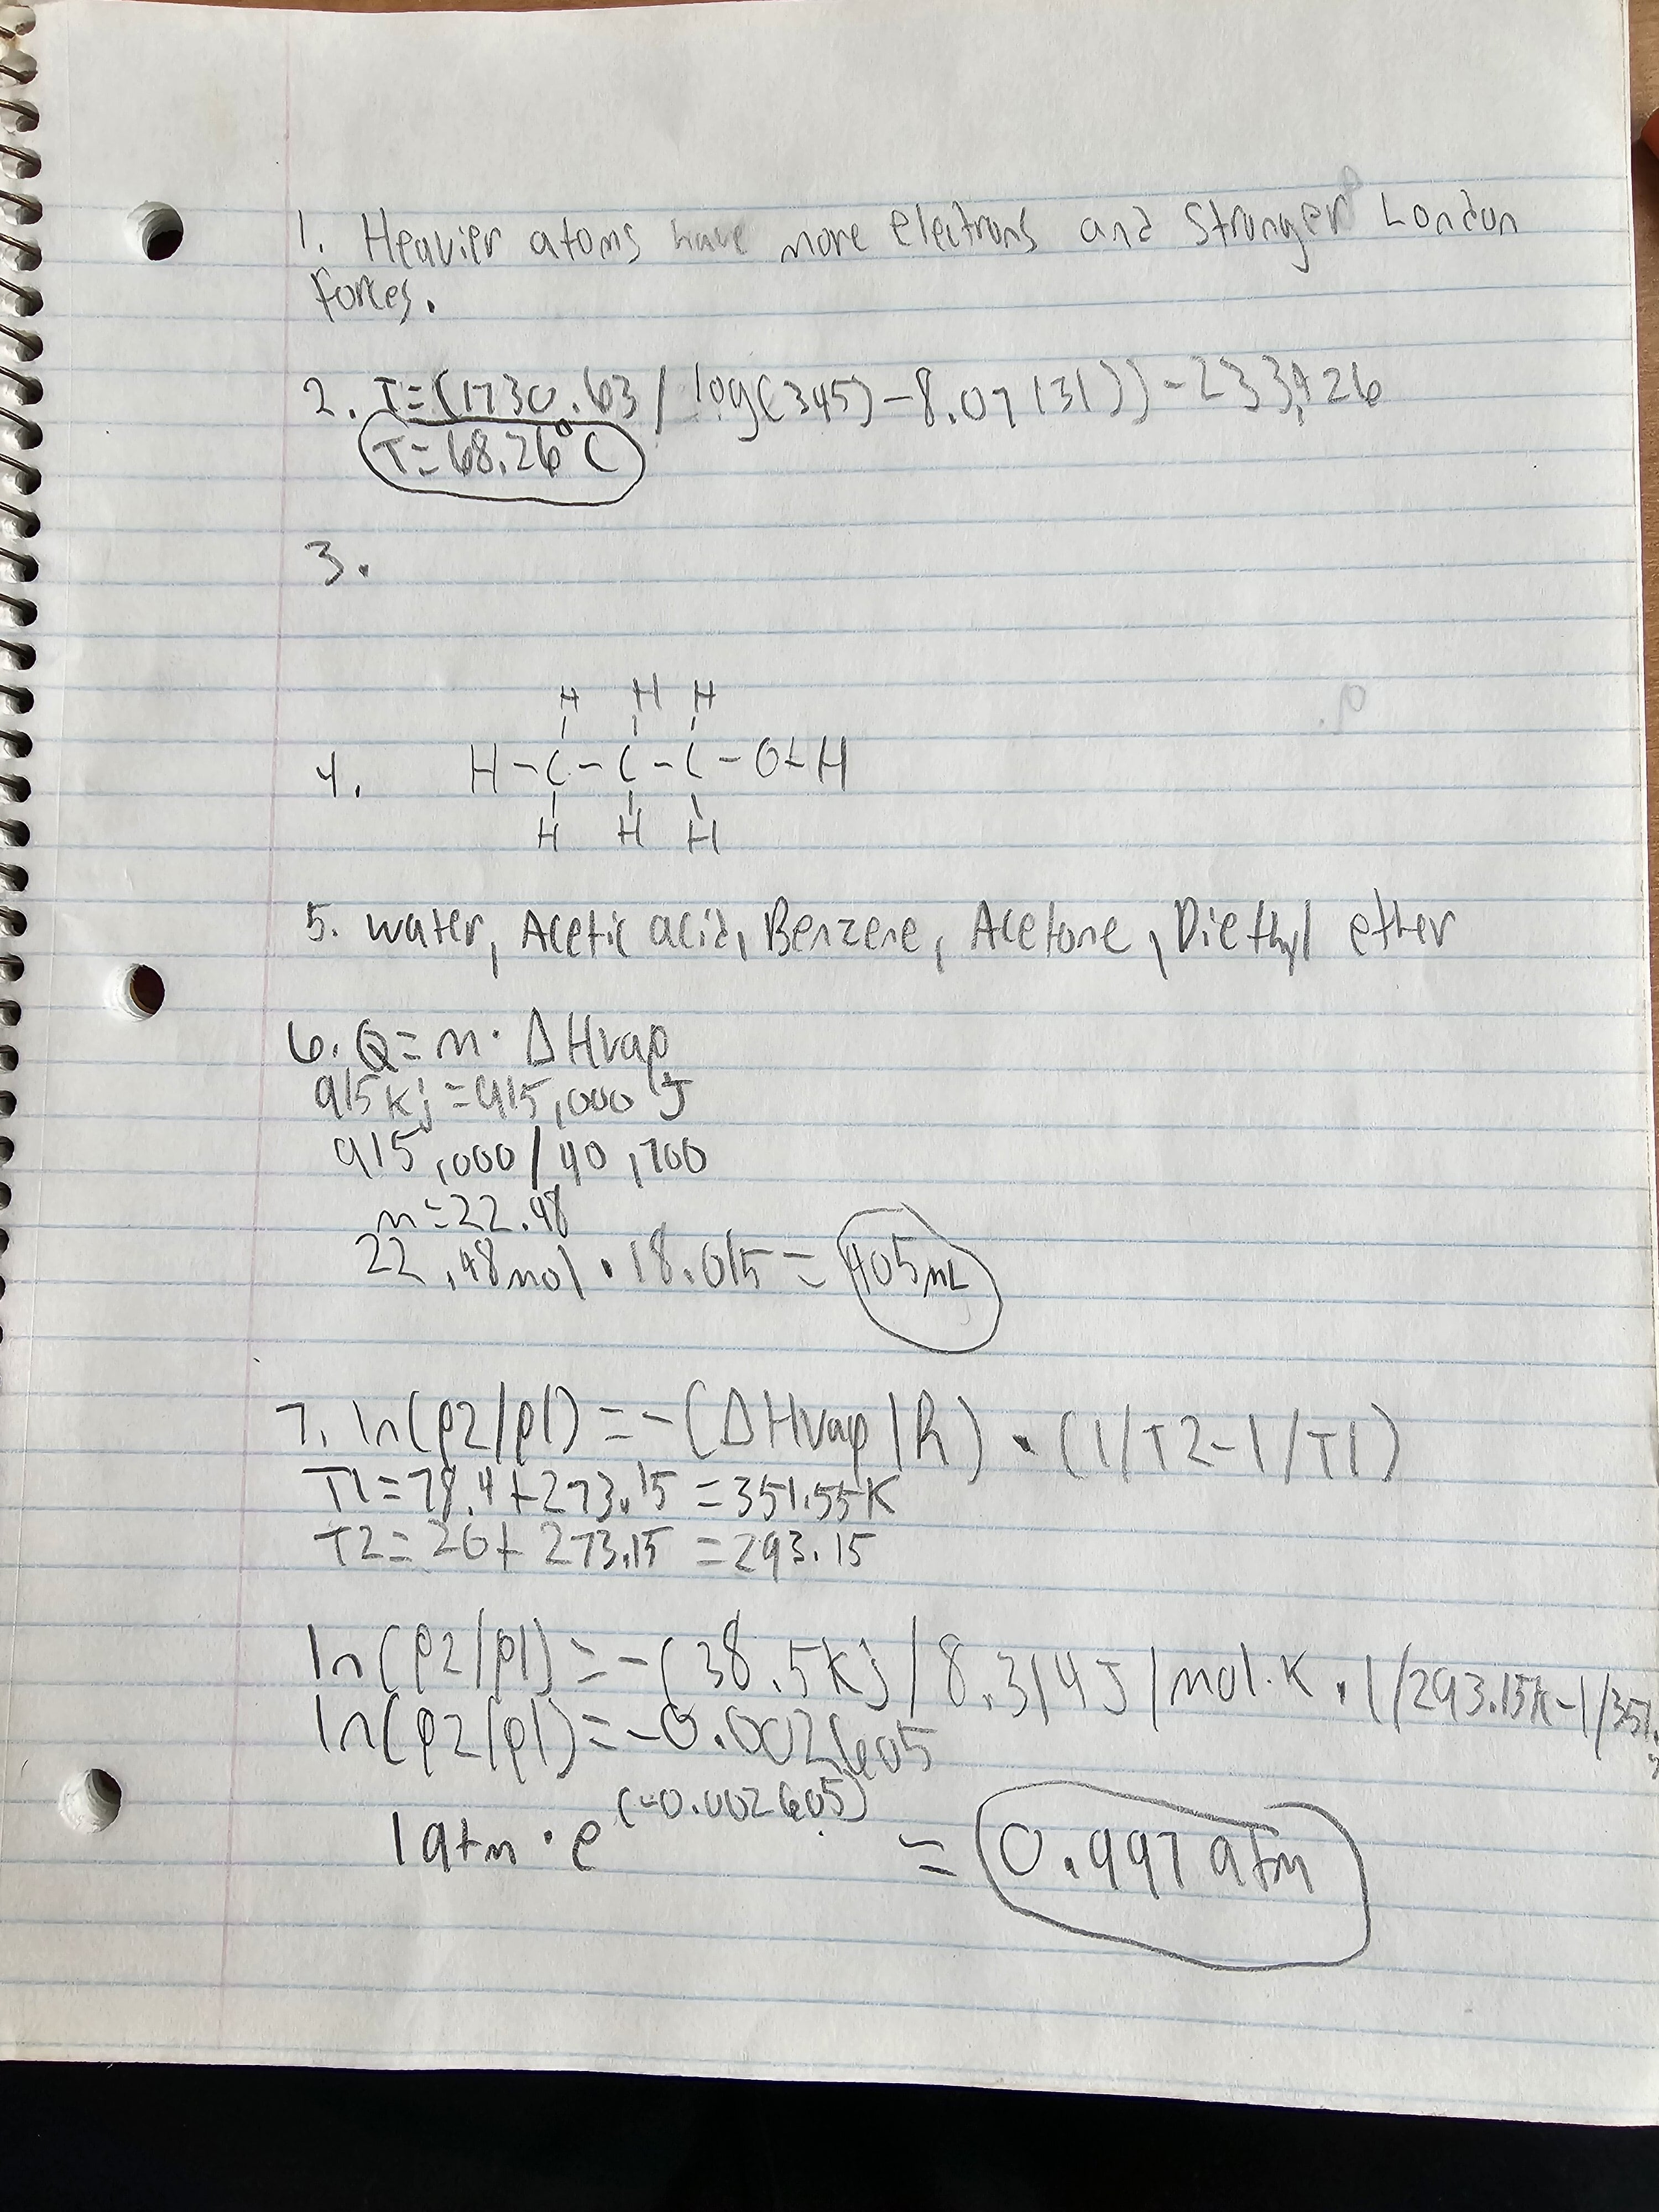 1. Heavier atoms have more electrons and stronger London
forces.
2. T=(1730.63/log(345)-8.07131))-233.426
T=68.26°C
3.
H H H
4. H-C-C-C-O-H
H H H
5. water, Acetic acid, Benzene, Acetone, Diethyl ether
6. Q=n· ΔHvap
915kj=915,000 J
915,000/40,700
n=22.48
22.48mol · 18.015= 405mL
7. ln(p2/p1)=-(ΔHvap/R) · (1/T2-1/T1)
T1=78.4+273.15=351.55K
T2=20+273.15=293.15
ln(p2/p1)=-(38.5kj/8.314J/mol·K · 1/293.15K-1/351.
ln(p2/p1)=-0.002605
1atm · e^(-0.002605) = 0.997atm